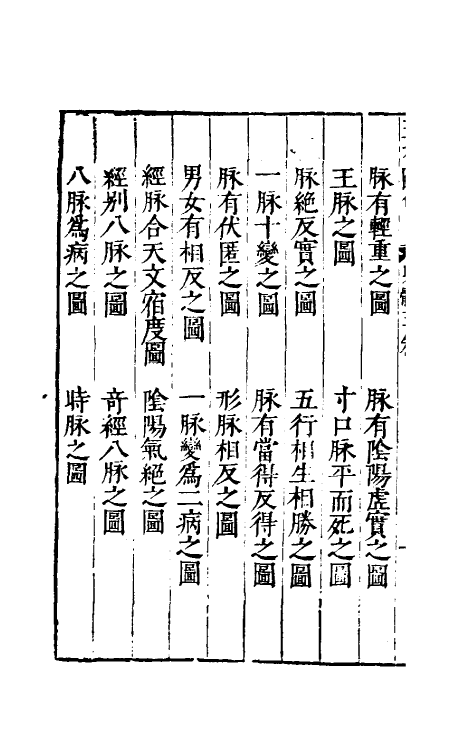 脉有輕重之圖　脉有陰陽虛實之圖
王脉之圖　寸口脉平而死之圖
脉絕反實之圖　五行相生相勝之圖
一脉十變之圖　脉有當得反得之圖
脉有伏匿之圖　形脉相反之圖
男女有相反之圖　一脉變爲二病之圖
經脉合天文宿度圖　陰陽氣絕之圖
經別八脉之圖　奇經八脉之圖
八脉爲病之圖　時脉之圖